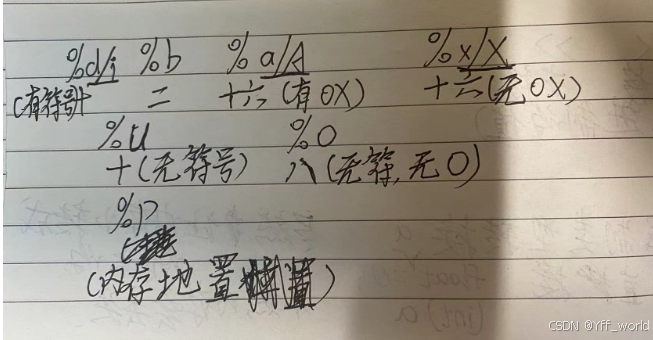 %d/i %b %a/A %x/X
(有符号十 二 十六(有0X) 十六(无0X)
%u %O
十(无符号) 八(无符,无0)
%p
(内存地置)
CSDN @Yff_world